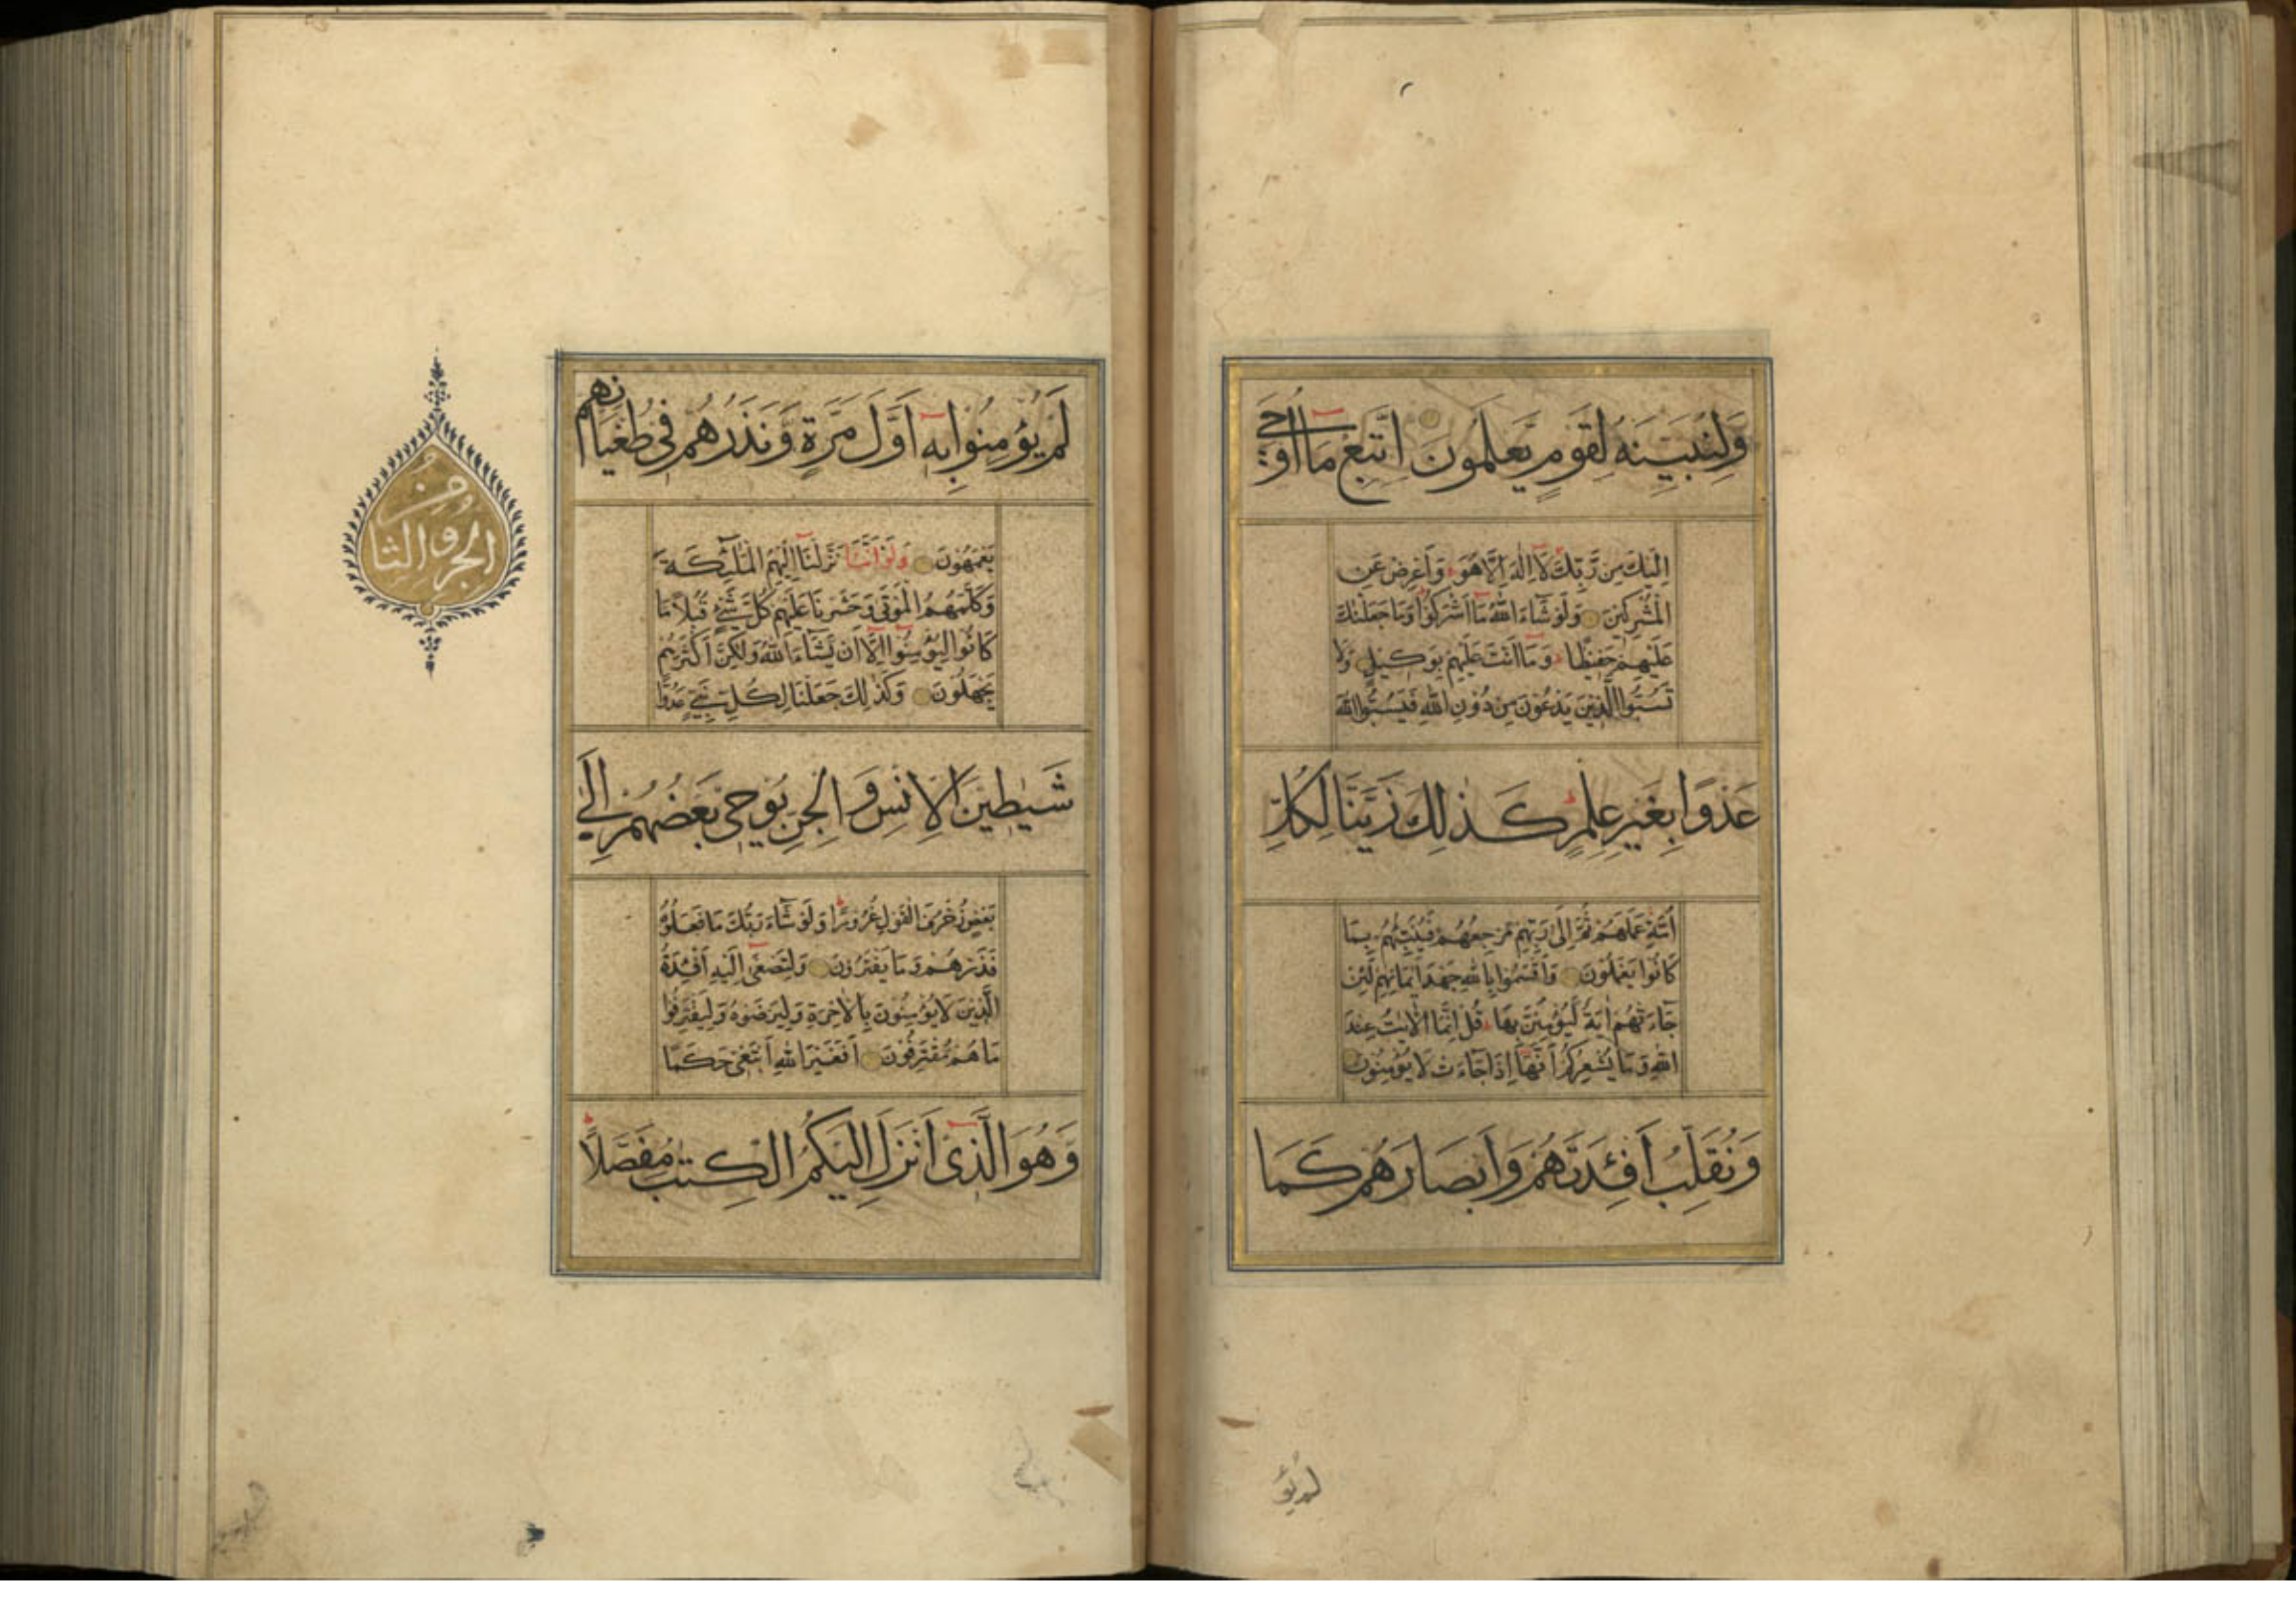 وَلِنُبَيِّنَهُ لِقَوْمٍ يَعْلَمُونَ اِتَّبِعْ مَا اُوحِيَ
اِلَيْكَ مِن رَّبِّكَ لَا اِلٰهَ اِلَّا هُوَ وَاَعْرِضْ عَنِ
الْمُشْرِكِينَ وَلَوْ شَاءَ اللّٰهُ مَا اَشْرَكُوا وَمَا جَعَلْنٰكَ
عَلَيْهِمْ حَفِيظًا وَمَا اَنْتَ عَلَيْهِمْ بِوَكِيلٍ وَلَا
تَسُبُّوا الَّذِينَ يَدْعُونَ مِنْ دُوْنِ اللّٰهِ فَيَسُبُّوا اللّٰهَ
عَدْوًا بِغَيْرِ عِلْمٍ كَذٰلِكَ زَيَّنَّا لِكُلِّ
اُمَّةٍ عَمَلَهُمْ ثُمَّ اِلَى رَبِّهِمْ مَرْجِعُهُمْ فَيُنَبِّئُهُمْ بِمَا
كَانُوا يَعْمَلُونَ وَاَقْسَمُوا بِاللّٰهِ جَهْدَ اَيْمَانِهِمْ لَئِنْ
جَاءَتْهُمْ اٰيَةٌ لَّيُؤْمِنُنَّ بِهَا قُلْ اِنَّمَا الْاٰيٰتُ عِنْدَ
اللّٰهِ وَمَا يُشْعِرُكُمْ اَنَّهَا اِذَا جَاءَتْ لَا يُؤْمِنُونَ
وَنُقَلِّبُ اَفْئِدَتَهُمْ وَاَبْصَارَهُمْ كَمَا
لم يؤ
لَمْ يُؤْمِنُوا بِهِ اَوَّلَ مَرَّةٍ وَّنَذَرُهُمْ فِي طُغْيَانِهِمْ
يَعْمَهُوْنَ وَلَوْ اَنَّنَا نَزَّلْنَا اِلَيْهِمُ الْمَلٰئِكَةَ
وَكَلَّمَهُمُ الْمَوْتٰى وَحَشَرْنَا عَلَيْهِمْ كُلَّ شَيْءٍ قُبُلًا مَا
كَانُوا لِيُؤْمِنُوا اِلَّا اَنْ يَّشَاءَ اللّٰهُ وَلٰكِنَّ اَكْثَرَهُمْ
يَجْهَلُونَ وَكَذٰلِكَ جَعَلْنَا لِكُلِّ نَبِيٍّ عَدُوًّا
شَيٰطِينَ الْاِنْسِ وَالْجِنِّ يُوْحِى بَعْضُهُمْ اِلٰى
بَعْضٍ زُخْرُفَ الْقَوْلِ غُرُوْرًا وَلَوْ شَاءَ رَبُّكَ مَا فَعَلُوْهُ
فَذَرْهُمْ وَمَا يَفْتَرُوْنَ وَلِتَصْغٰى اِلَيْهِ اَفْئِدَةُ
الَّذِيْنَ لَا يُؤْمِنُوْنَ بِالْاٰخِرَةِ وَلِيَرْضَوْهُ وَلِيَقْتَرِفُوا
مَا هُمْ مُّقْتَرِفُوْنَ اَفَغَيْرَ اللّٰهِ اَبْتَغِى حَكَمًا
وَهُوَ الَّذِىْ اَنْزَلَ اِلَيْكُمُ الْكِتٰبَ مُفَصَّلًا
الجزو الثامن